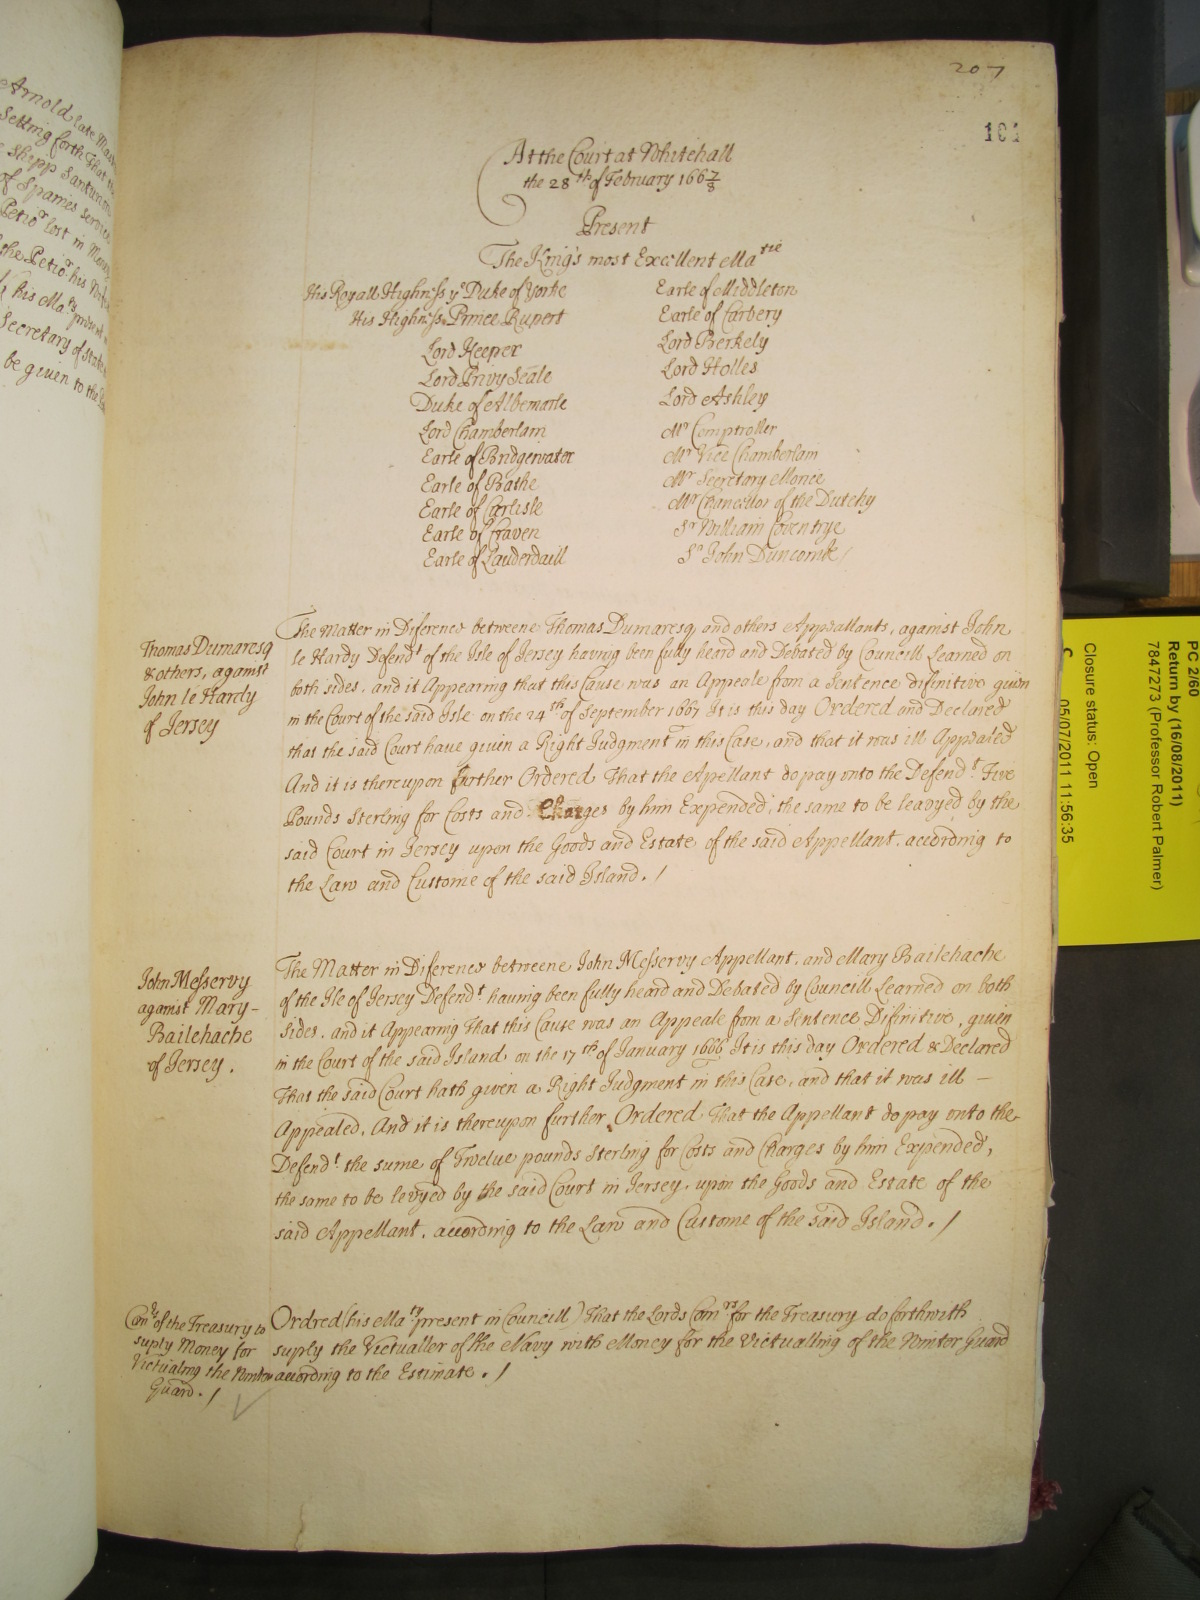 e Arnold late Mas
Setting forth That th
e Shipp Santun
of Spames service
Petior lost in
the Petior his
his Ma.ty present
Secretary of State
be given to the
207
101
At the Court at Whitehall
the 28th of February 166 7/8
Present
The Kings most Excellent Matie
His Royall Highness ye Duke of Yorke
His Highness Prince Rupert
Lord Keeper
Lord Privy Seale
Duke of Albemarle
Lord Chamberlain
Earle of Bridgewater
Earle of Bathe
Earle of Carlisle
Earle of Craven
Earle of Lauderdaill
Earle of Middleton
Earle of Carbery
Lord Berkely
Lord Holles
Lord Ashley
Mr Comptroller
Mr Vice Chamberlain
Mr Secretary Morice
Mr Chancellor of the Dutchy
Sr William Coventrye
Sr John Duncombe /
Thomas Dumaresq
& others, against
John le Hardy
of Jersey
The Matter in Diference betweene Thomas Dumaresq and others Appeallants, against John
le Hardy Defendt of the Isle of Jersey having been fully heard and Debated by Councill Learned on
both sides, and it Appearing that this Cause was an Appeale from a Sentence difinitive given
in the Court of the said Isle on the 24th of September 1667 It is this day Ordered and Declared
that the said Court have given a Right Judgment in this Case, and that it was ill Appealed
And it is thereupon further Ordered That the Apellant do pay unto the Defendt Five
Pounds Sterling for Costs and Charges by him Expended, the same to be leavyed by the
said Court in Jersey upon the Goods and Estate of the said Appellant, according to
the Law and Custome of the said Island. /
John Messervy
against Mary-
Bailehache
of Jersey.
The Matter in Diference betweene John Messervy Appellant, and Mary Bailehache
of the Ile of Jersey Defendt having been fully heard and Debated by Councill Learned on both
sides, and it Appearing That this Cause was an Appeale from a Sentence Difinitive, given
in the Court of the said Island on the 17th of January 1666 It is this day Ordered & Declared
That the said Court hath given a Right Judgment in this Case, and that it was ill -
Appealed, And it is thereupon further Ordered That the Appellant do pay unto the
Defendt the sume of Twelve pounds Sterling for Costs and Charges by him Expended,
the same to be levyed by the said Court in Jersey, upon the Goods and Estate of the
said Appellant, according to the Law and Custome of the said Island. /
Comrs of the Treasury to
suply Money for
Victualing the Winter
Guard. /
Ordred (his Maty present in Councill) That the Lords Comrs for the Treasury do forthwith
suply the Victualler of the Navy with Money for the Victualling of the Winter Guard
according to the Estimate. /
PC 2/60
Return by (16/08/2011)
7847273 (Professor Robert Palmer)
Closure status: Open
05/07/2011 11:56:35